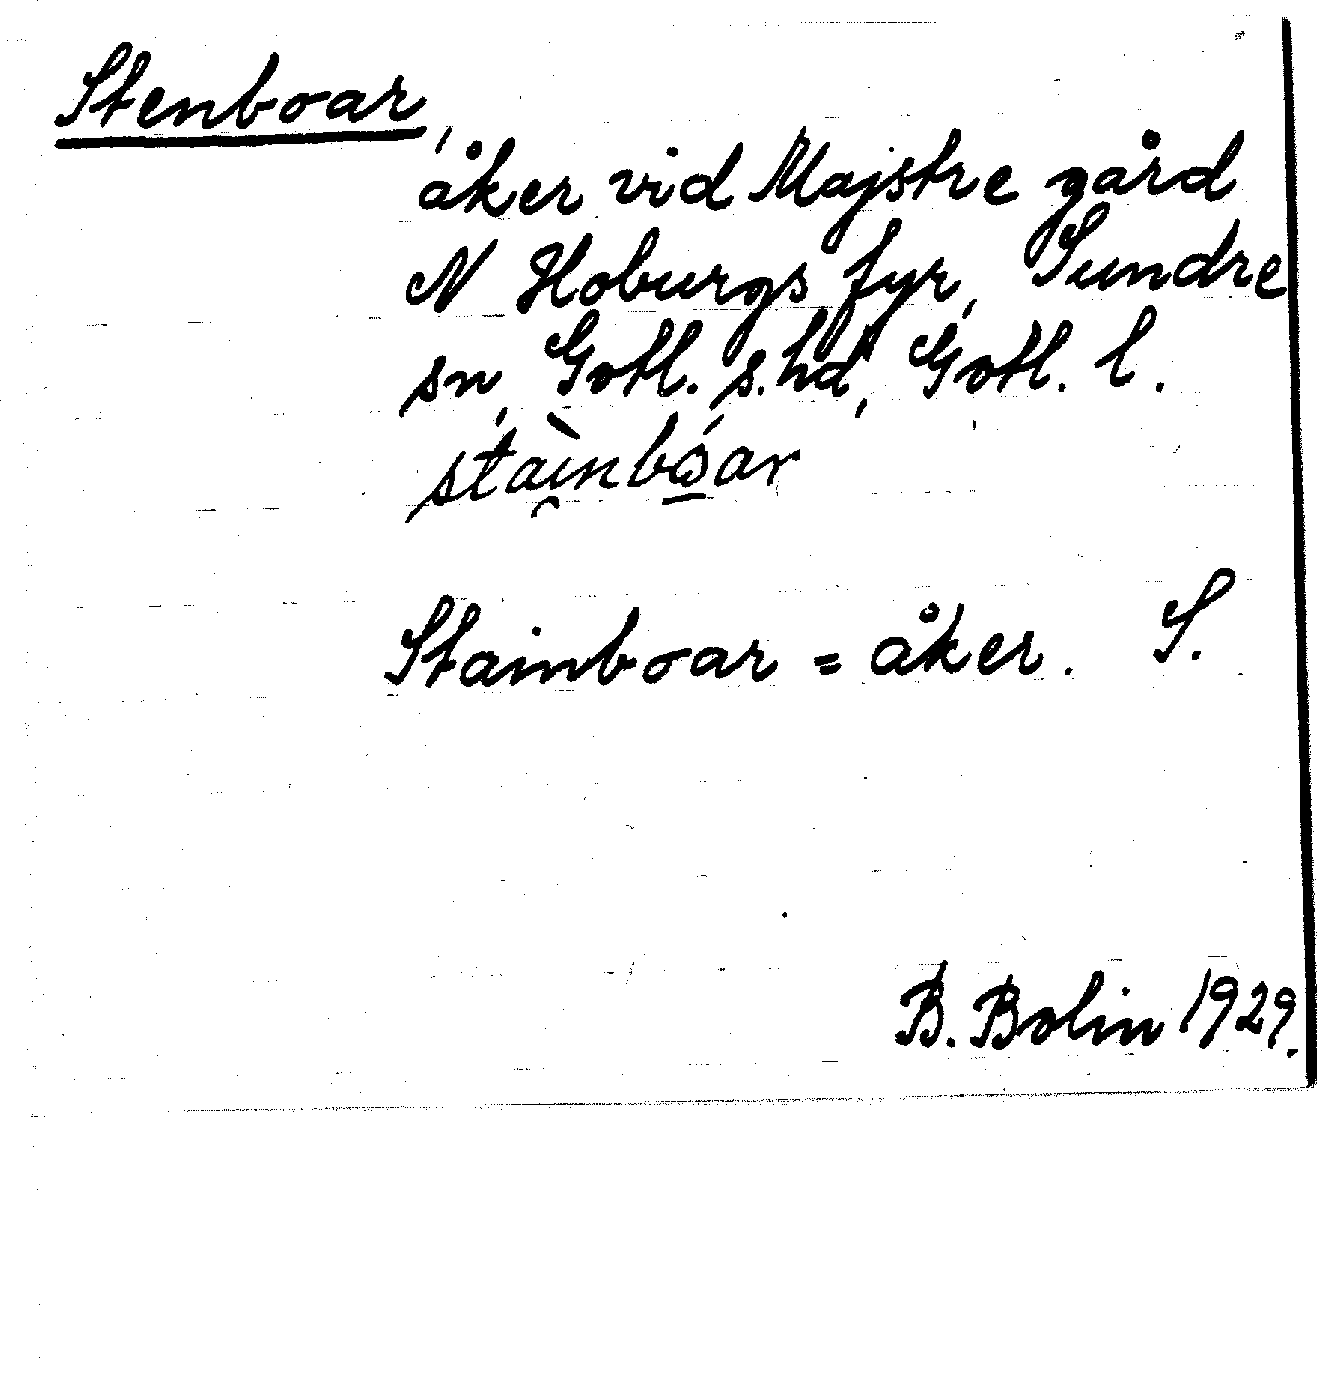 Stenboar,
åker vid Majstre gård
N Hoburgs fyr, Sundre
sn, Gotl. s. hd, Gotl. l.
stài̯nbó̱ar
Stainboar = åker. S.
B. Bolin 1929.